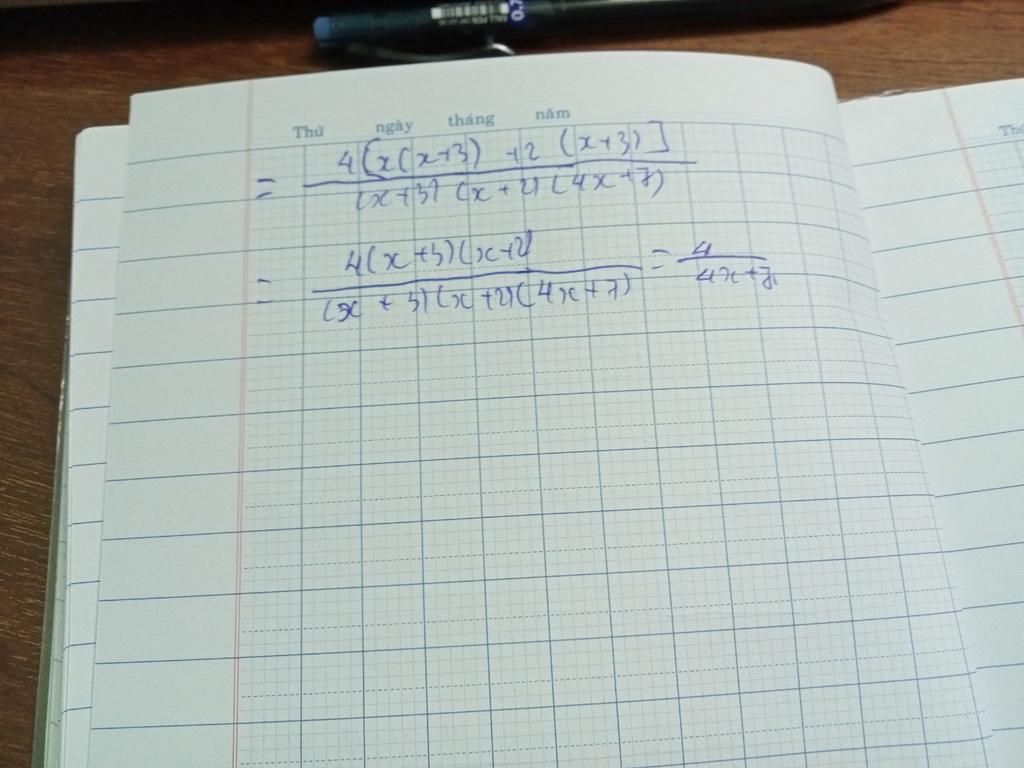 0.7
Thứ ngày tháng năm
= 4[x(x+3) +2 (x+3)] / (x+3) (x+2) (4x+7)
= 4(x+3)(x+2) / (x+3)(x+2)(4x+7) = 4 / 4x+7